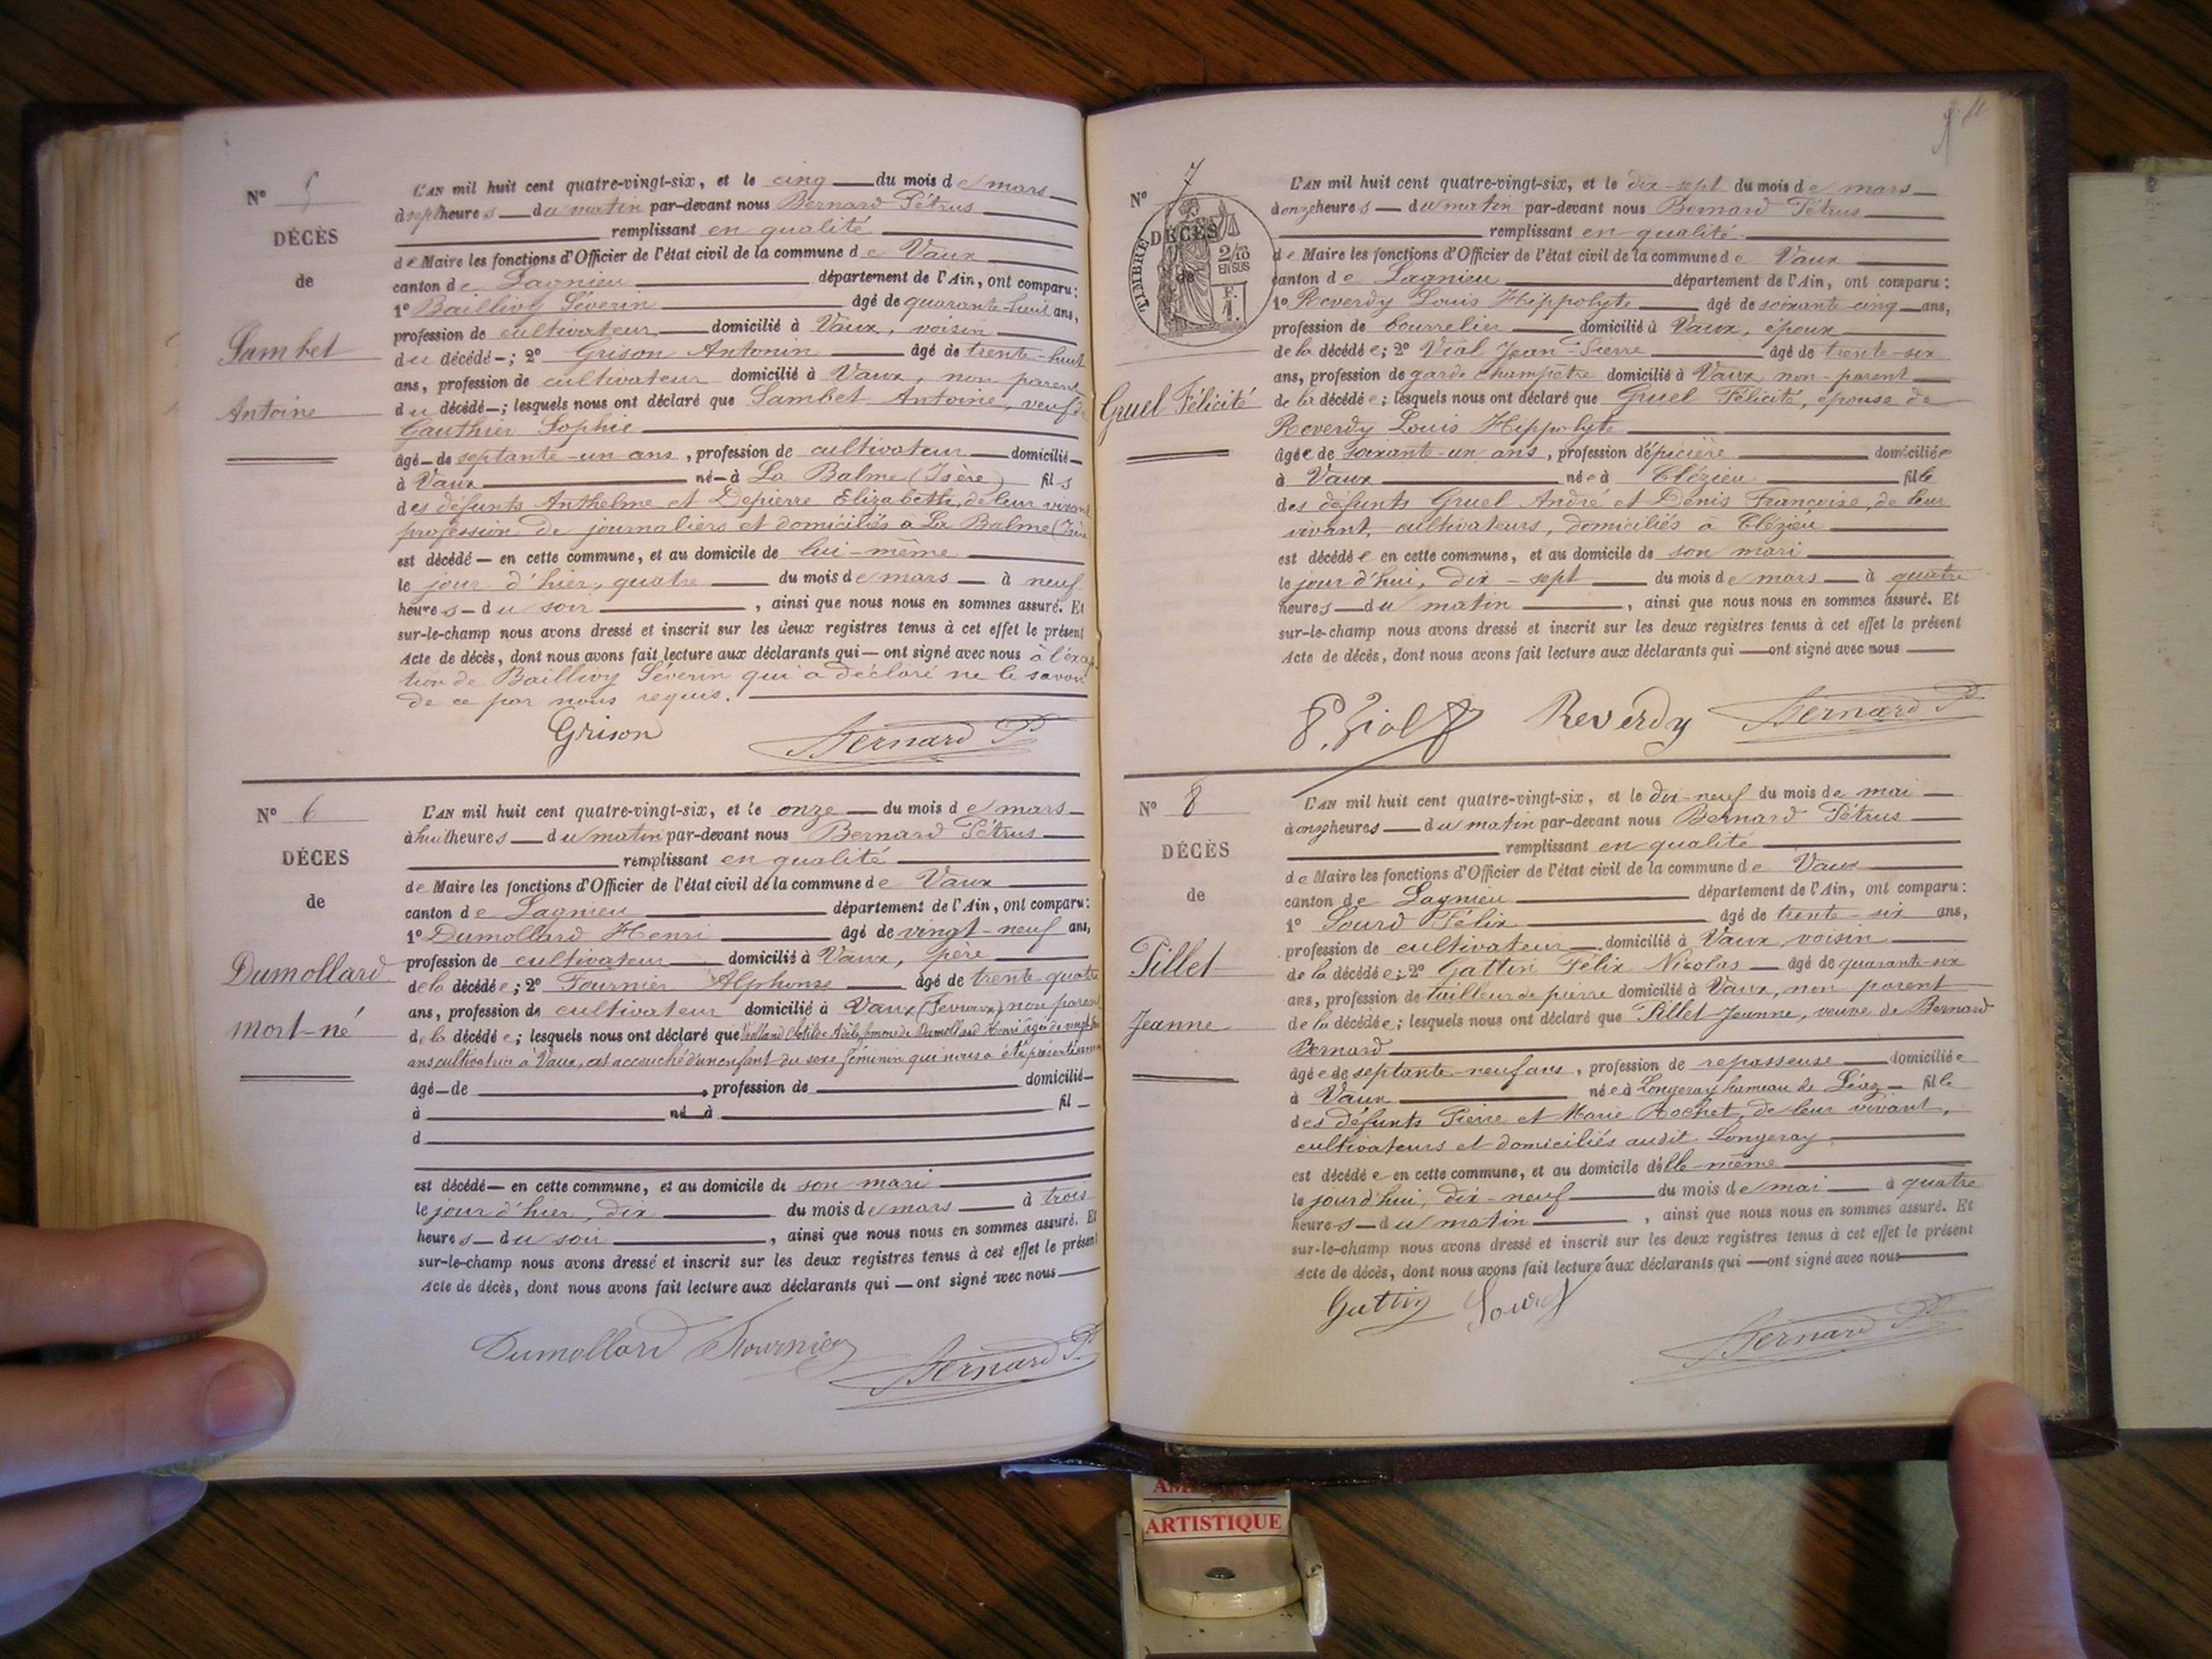 N° 5
DÉCÈS
de
Sambet
Antoine
L'AN mil huit cent quatre-vingt-six, et le cinq du mois de mars
à sept heures du matin par-devant nous Bernard Pétrus
remplissant en qualité
de Maire les fonctions d'Officier de l'état civil de la commune de Vaux
canton de Lagnieu département de l'Ain, ont comparu:
1° Baillivy Séverin âgé de quarante-huit ans,
profession de cultivateur domicilié à Vaux, voisin
du décédé; 2° Grison Antonin âgé de trente-huit
ans, profession de cultivateur domicilié à Vaux, non parent
du décédé; lesquels nous ont déclaré que Sambet Antoine, veuf de
Gauthier Sophie
âgé de septante-un ans, profession de cultivateur domicilié
à Vaux né à La Balme (Isère) fils
des défunts Anthelme et Depierre Elizabeth, de leur vivant
profession de journaliers et domiciliés à La Balme (Isère
est décédé en cette commune, et au domicile de lui-même
le jour d'hier, quatre du mois de mars à neuf
heures du soir, ainsi que nous nous en sommes assuré. Et
sur-le-champ nous avons dressé et inscrit sur les deux registres tenus à cet effet le présent
Acte de décès, dont nous avons fait lecture aux déclarants qui ont signé avec nous à l'excep-
tion de Baillivy Séverin qui a déclaré ne le savoir
de ce par nous requis.
Grison Bernard P.
N° 6
DÉCES
de
Dumollard
mort-né
L'AN mil huit cent quatre-vingt-six, et le onze du mois de mars
à huit heures du matin par-devant nous Bernard Pétrus
remplissant en qualité
de Maire les fonctions d'Officier de l'état civil de la commune de Vaux
canton de Lagnieu département de l'Ain, ont comparu:
1° Dumollard Henri âgé de vingt-neuf ans,
profession de cultivateur domicilié à Vaux, père
de la décédée; 2° Fournier Alphonse âgé de trente-quatre
ans, profession de cultivateur domicilié à Vaux ( ) non parent
de la décédée; lesquels nous ont déclaré que Clotilde Adèle, femme de Dumollard Henri âgée de vingt
ans cultivatrice à Vaux, est accouchée d'un enfant du sexe féminin qui nous a été présenté
âgé de, profession de domicilié
à né à fil
d
est décédé en cette commune, et au domicile de son mari
le jour d'hier, dix du mois de mars à trois
heures du soir, ainsi que nous nous en sommes assuré. Et
sur-le-champ nous avons dressé et inscrit sur les deux registres tenus à cet effet le présent
Acte de décès, dont nous avons fait lecture aux déclarants qui ont signé avec nous
Dumollard Fournier Bernard P.
N° 7
DÉCÈS
de
TIMBRE
2/10
EN SUS
F.
1.
Gruel Félicité
L'AN mil huit cent quatre-vingt-six, et le dix-sept du mois de mars
à onze heures du matin par-devant nous Bernard Pétrus
remplissant en qualité
de Maire les fonctions d'Officier de l'état civil de la commune de Vaux
canton de Lagnieu département de l'Ain, ont comparu:
1° Reverdy Louis Hippolyte âgé de soixante-cinq ans,
profession de bourrelier domicilié à Vaux, époux
de la décédée; 2° Vial Jean-Pierre âgé de trente-six
ans, profession de garde champêtre domicilié à Vaux, non-parent
de la décédée; lesquels nous ont déclaré que Gruel Félicité, épouse de
Reverdy Louis Hippolyte
âgée de soixante-un ans, profession d'épicière domiciliée
à Vaux née à Clézieu fille
des défunts Gruel André et Denis Françoise, de leur
vivant, cultivateurs, domiciliés à Clézieu
est décédée en cette commune, et au domicile de son mari
le jour d'hui, dix-sept du mois de mars à quatre
heures du matin, ainsi que nous nous en sommes assuré. Et
sur-le-champ nous avons dressé et inscrit sur les deux registres tenus à cet effet le présent
Acte de décès, dont nous avons fait lecture aux déclarants qui ont signé avec nous
P. Vial Reverdy Bernard P.
N° 8
DÉCÈS
de
Pillet
Jeanne
L'AN mil huit cent quatre-vingt-six, et le dix-neuf du mois de mai
à onze heures du matin par-devant nous Bernard Pétrus
remplissant en qualité
de Maire les fonctions d'Officier de l'état civil de la commune de Vaux
canton de Lagnieu département de l'Ain, ont comparu:
1° Sourd Félix âgé de trente-six ans,
profession de cultivateur domicilié à Vaux voisin
de la décédée; 2° Gattin Félix Nicolas âgé de quarante-six
ans, profession de tailleur de pierre domicilié à Vaux, non parent
de la décédée; lesquels nous ont déclaré que Pillet Jeanne, veuve de Bernard
Bernard
âgée de septante-neuf ans, profession de repasseuse domiciliée
à Vaux née à Longeray hameau de Léaz fille
des défunts Pierre et Marie Rochet, de leur vivant,
cultivateurs et domiciliés audit Longeray
est décédée en cette commune, et au domicile d'elle-même
le jour d'hui, dix-neuf du mois de mai à quatre
heures du matin, ainsi que nous nous en sommes assuré. Et
sur-le-champ nous avons dressé et inscrit sur les deux registres tenus à cet effet le présent
Acte de décès, dont nous avons fait lecture aux déclarants qui ont signé avec nous
Gattin Sourd Bernard P.
ARTISTIQUE